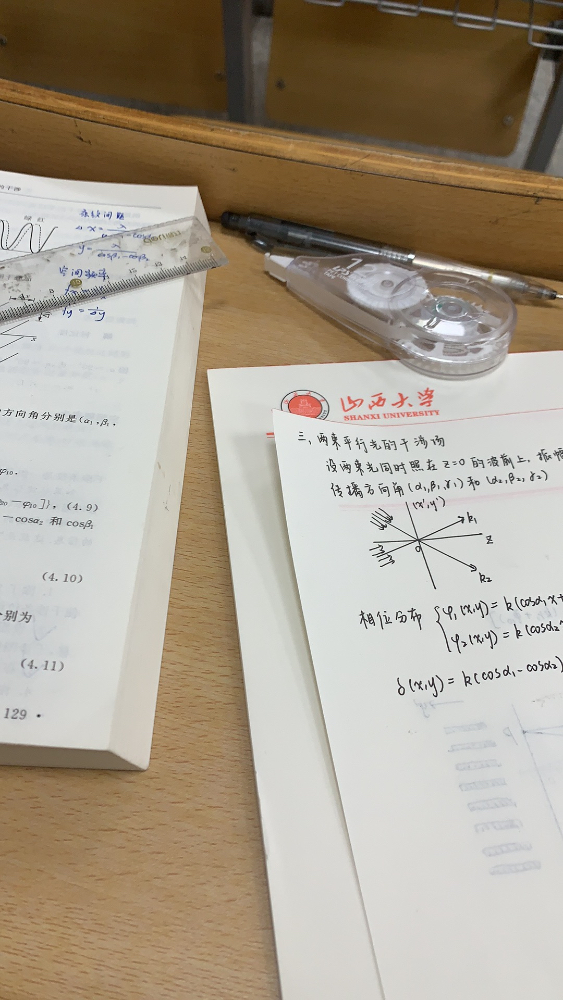 条纹间距
空间频率
方向角分别是(α₁,β₁,
φ₁₀.
−φ₁₀]},(4.9)
−cosα₂ 和 cosβ₁
(4.10)
别为
(4.11)
129 ·
山西大学
SHANXI UNIVERSITY
三、两束平行光的干涉场
设两束光同时照在 z=0 的波前上,振幅
传播方向角(α₁,β₁,γ₁)和(α₂,β₂,γ₂)
(x',y')
k₁
0
z
k₂
相位分布 { φ₁(x,y)=k(cosα₁x+
φ₂(x,y)=k(cosα₂
δ(x,y)=k(cosα₁−cosα₂)